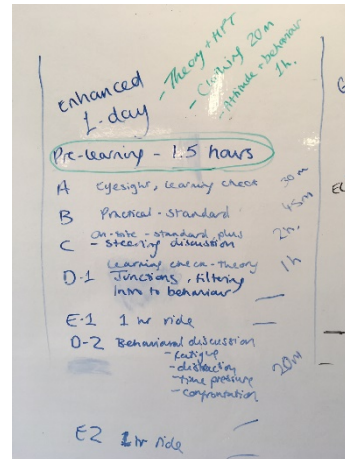 - Theory + HPT
- Clothing 20m
- Attitude + behaviour
1h.
Enhanced
1-day
Pre-learning - 1.5 hours
A Eyesight, learning check 30m
B Practical - standard 45m
C On-site - standard, plus 2h.
- steering discussion
learning check - theory
D-1 Junctions, filtering 1h
Intro to behaviour
E-1 1 hr ride
D-2 Behavioural discussion
- fatigue
- distraction
- time pressure
- confrontation
20m
E2 1 hr ride